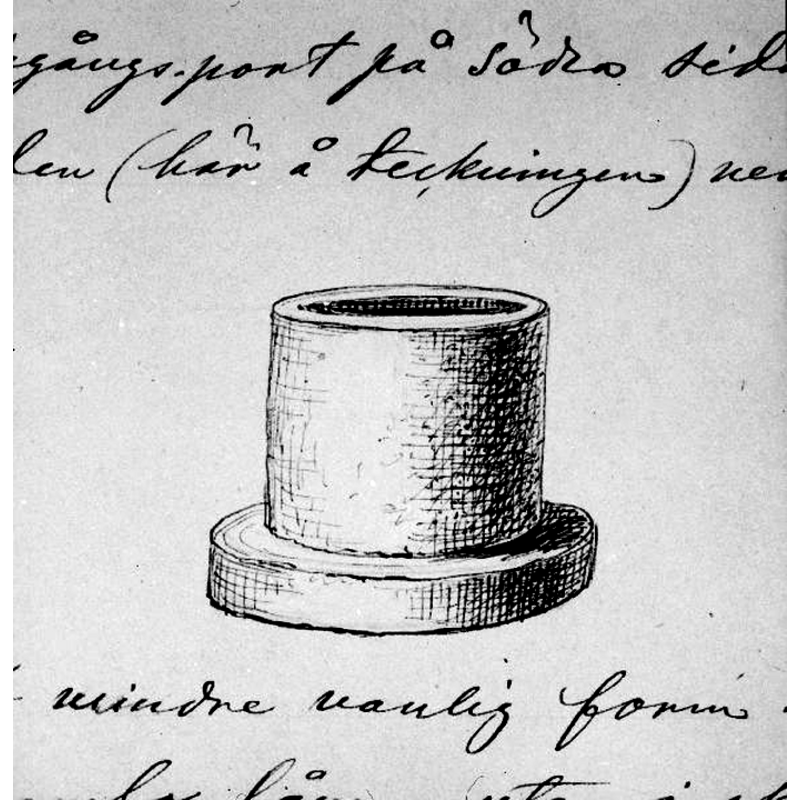 gångsport på södra sid
len (här å teckningen)
mindre vanlig form